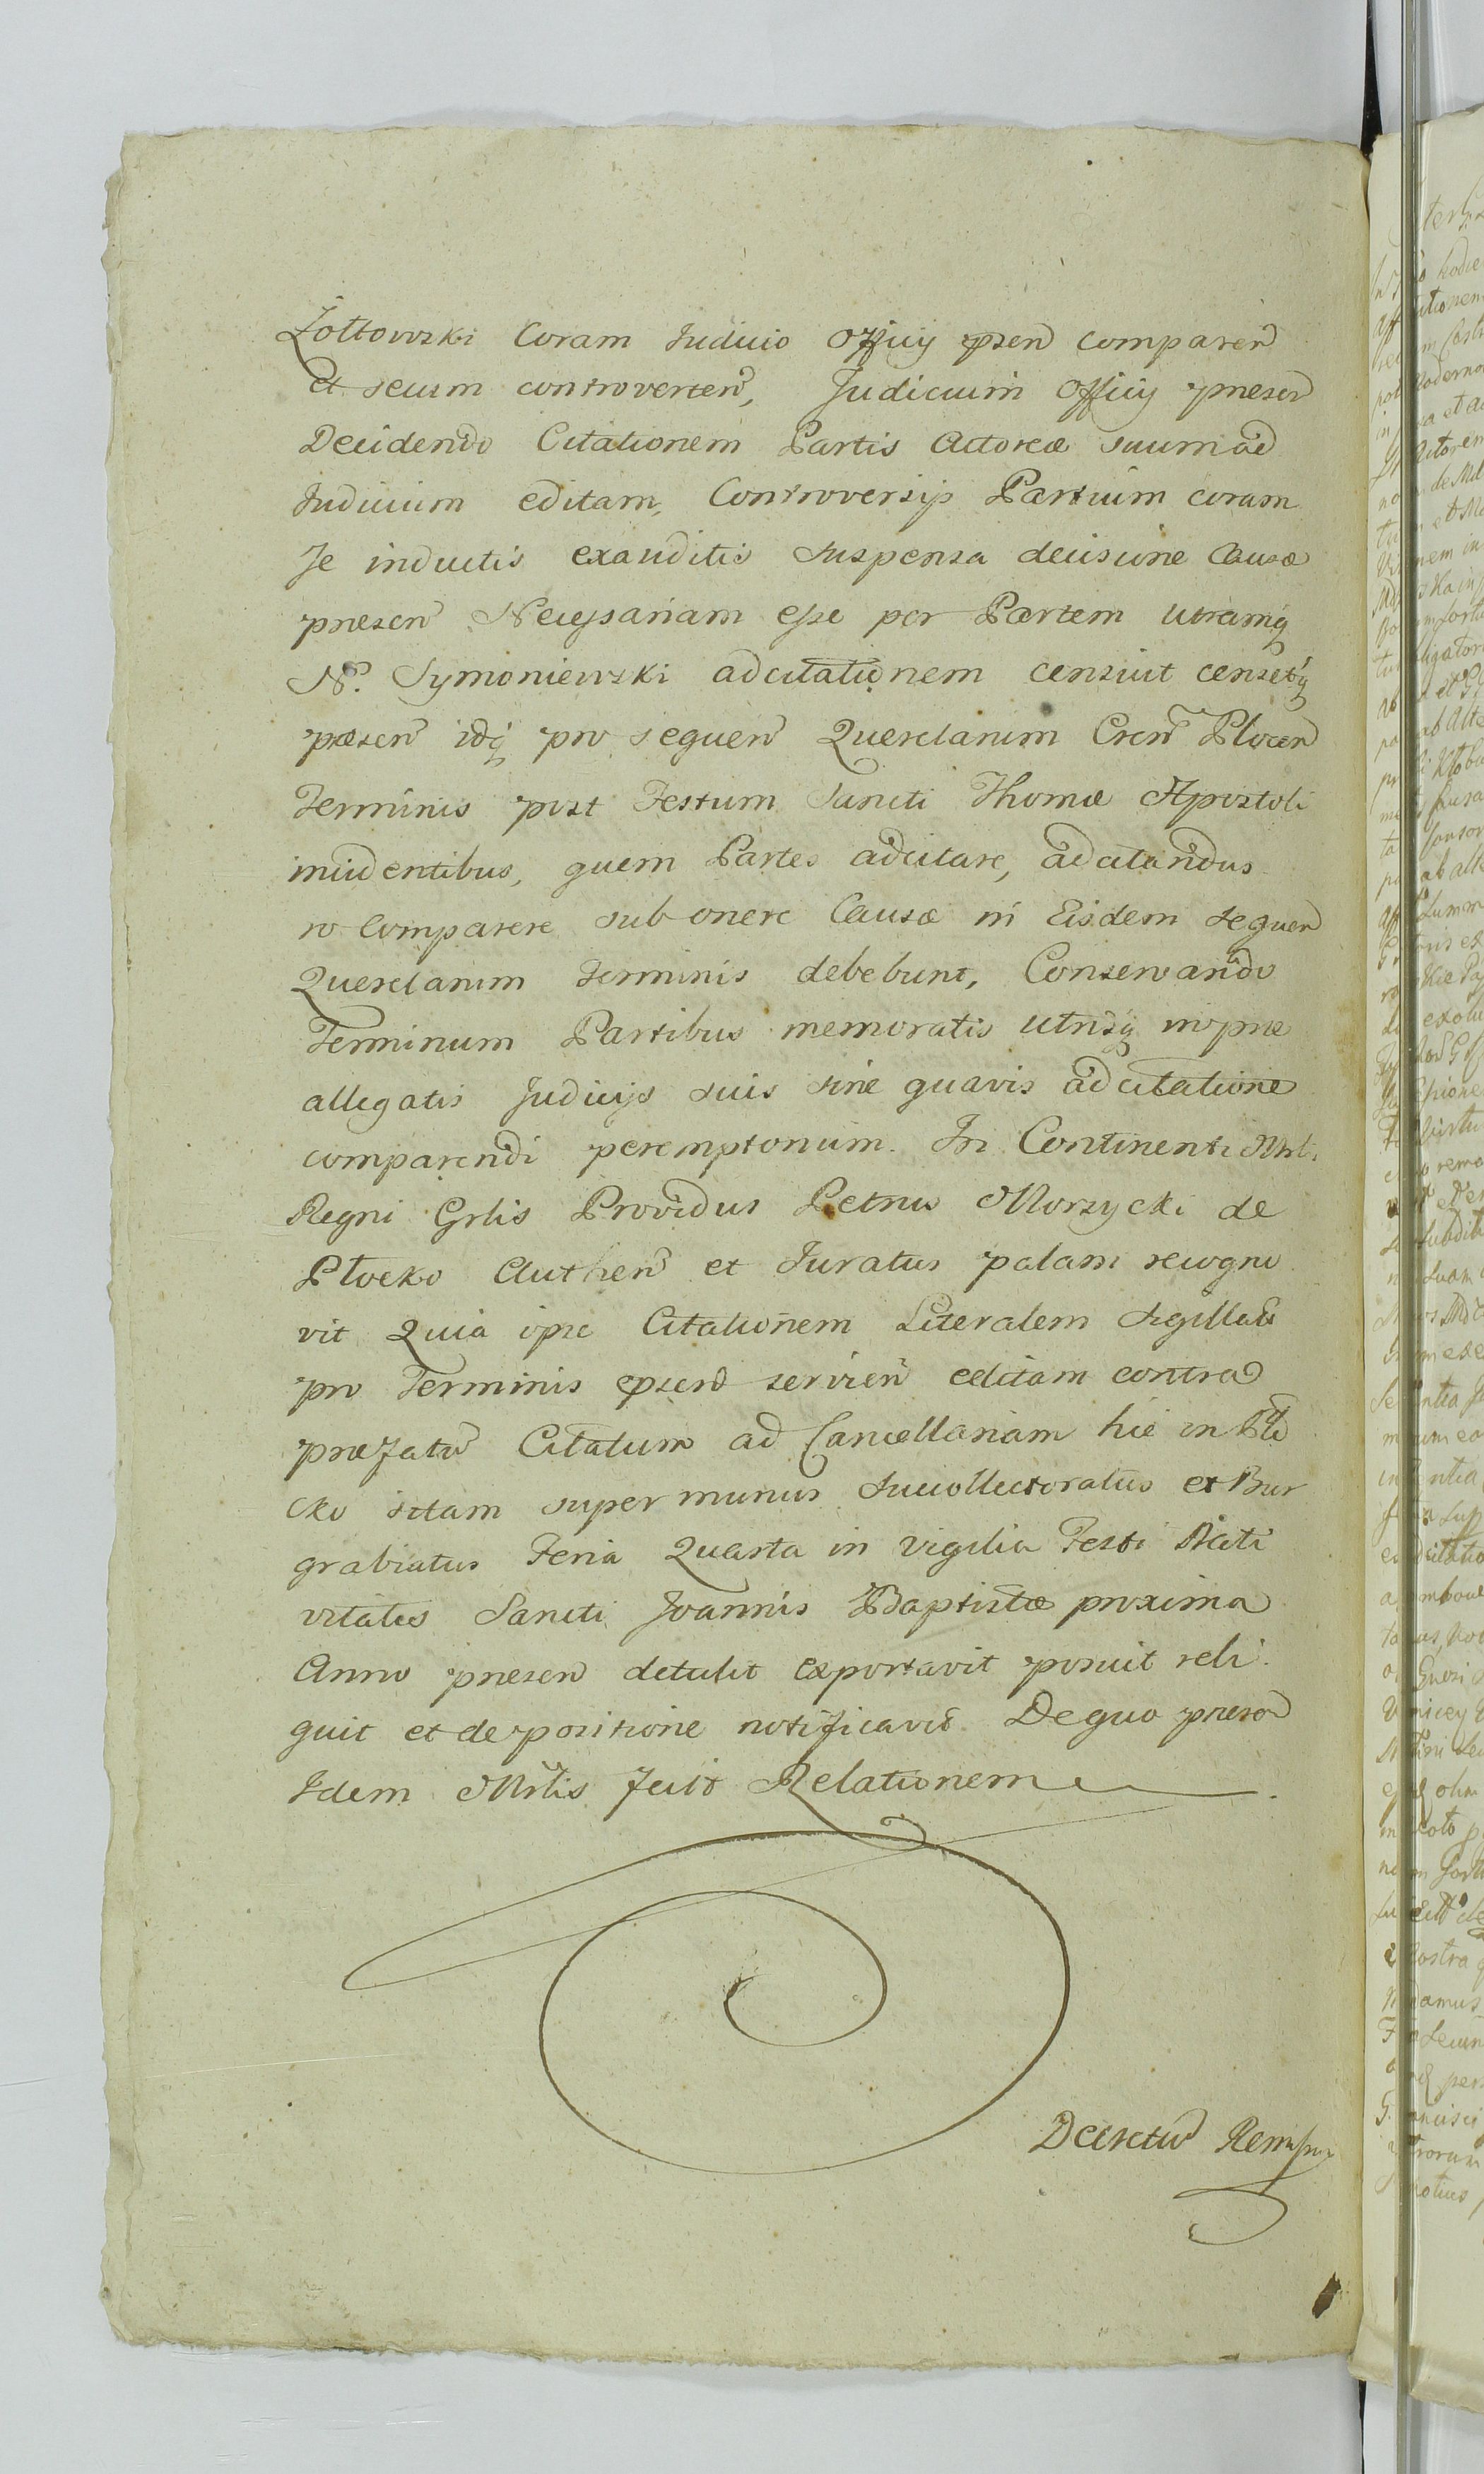 Żołtowski Coram Iudicio Officij psen comparen
et secum controverten, Judicium Officij praesen
Decidendo Citationem Partis Actoreae suum ad
Iudicium editam, Controversijs Partium coram
se inductis exauditis suspensa decisione Causae
praesen Necessariam esse per Partem utramq
N. Symoniewski adcitationem censuit censetq
praesen idq pro sequen Querelarum Cren Plocen
Terminis post Festum Sancti Thomae Apostoli
incidentibus, quem Partes adcitare, adcitandus
ro Comparere sub onere Causae in Eisdem sequen
Querelarum Terminis debebunt, Conservando
Terminum Partibus memoratis utrisq in prae
allegatis Judicijs suis sine quavis adcitatione
comparendi peremptorium. In Continenti Mrl.
Regni Grlis Providus Petrus Morzycki de
Płocko Authen et Iuratus palam recogno
vit Quia ipse Citationem Literalem Sigillatã
pro Terminis psen servien editam contra
praefatũ Citatum ad Cancellariam hic in Pło
cko sitam super munus Succollectoratus et Bur
grabiatus Feria Quarta in vigilia Festi Nati
vitatis Sancti Joannis Baptistae proxima
Anno praesen detulit exportavit posuit reli
quit et de positione notificavit. De quo praesen
Idem Mrlis fecit Relationem
Decretũ Remiss